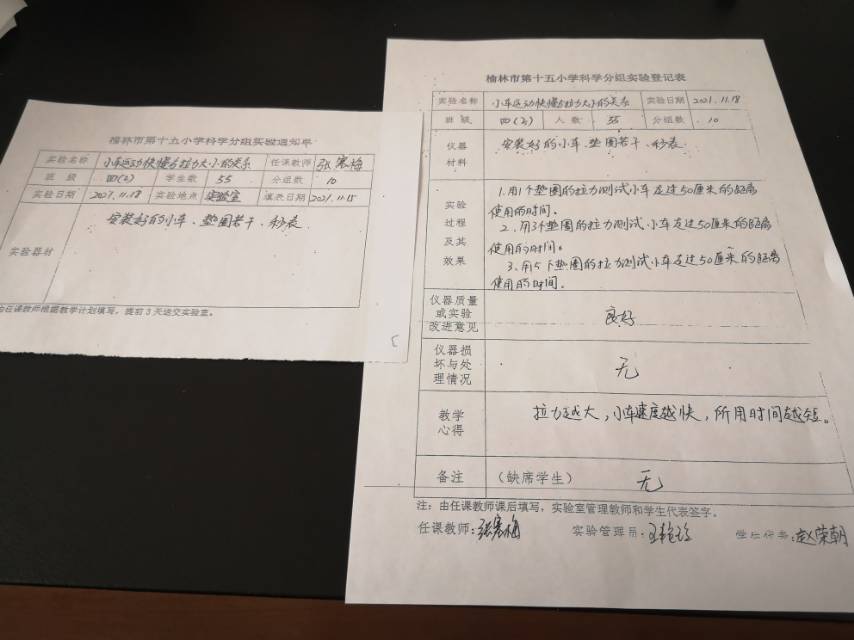 榆林市第十五小学科学分组实验通知单
实验名称 小车运动快慢与拉力大小的关系 任课教师 张寒梅
班 级 四(2) 学生数 55 分组数 10
实验日期 2021.11.18 实验地点 实验室 填表日期 2021.11.15
实验器材 安装好的小车、垫圈若干、秒表
由任课教师根据教学计划填写，提前3天送交实验室。
榆林市第十五小学科学分组实验登记表
实验名称 小车运动快慢与拉力大小的关系 实验日期 2021.11.18
班 级 四(2) 人 数 55 分组数 10
仪器
材料
安装好的小车、垫圈若干、秒表
实验
过程
及其
效果
1.用1个垫圈的拉力测试小车走过50厘米的距离
使用的时间。
2.用3个垫圈的拉力测试小车走过50厘米的距离
使用的时间。
3.用5个垫圈的拉力测试小车走过50厘米的距离
使用的时间。
仪器质量
或实验
改进意见
良好
仪器损
坏与处
理情况
无
教学
心得
拉力越大，小车速度越快，所用时间越短。
备注 (缺席学生) 无
注：由任课教师课后填写，实验室管理教师和学生代表签字。
任课教师：张寒梅 实验管理员： 学生代表：赵荣朝